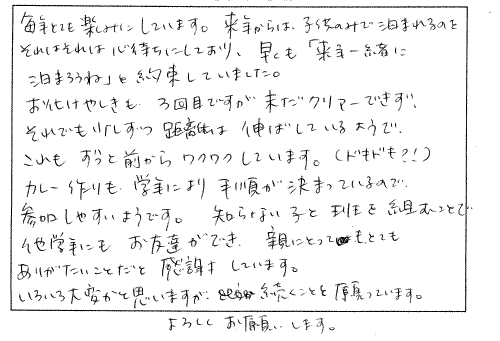 毎年とても楽しみにしています。来年からは、子供のみで泊まれるのを
それはそれは心待ちにしており、早くも「来年一緒に
泊まろうね」と約束していました。
お化けやしきも、3回目ですが未だクリアーできず、
それでも少しずつ距離は伸ばしているようで、
これもずっと前からワクワクしています。(ドキドキ?!)
カレー作りも、学年により手順が決まっているので、
参加しやすいようです。知らない子と班を組むことで
他学年にもお友達ができ、親にとってもとても
ありがたいことだと感謝しています。
いろいろ大変かと思いますが、続くことを願っています。
よろしくお願いします。